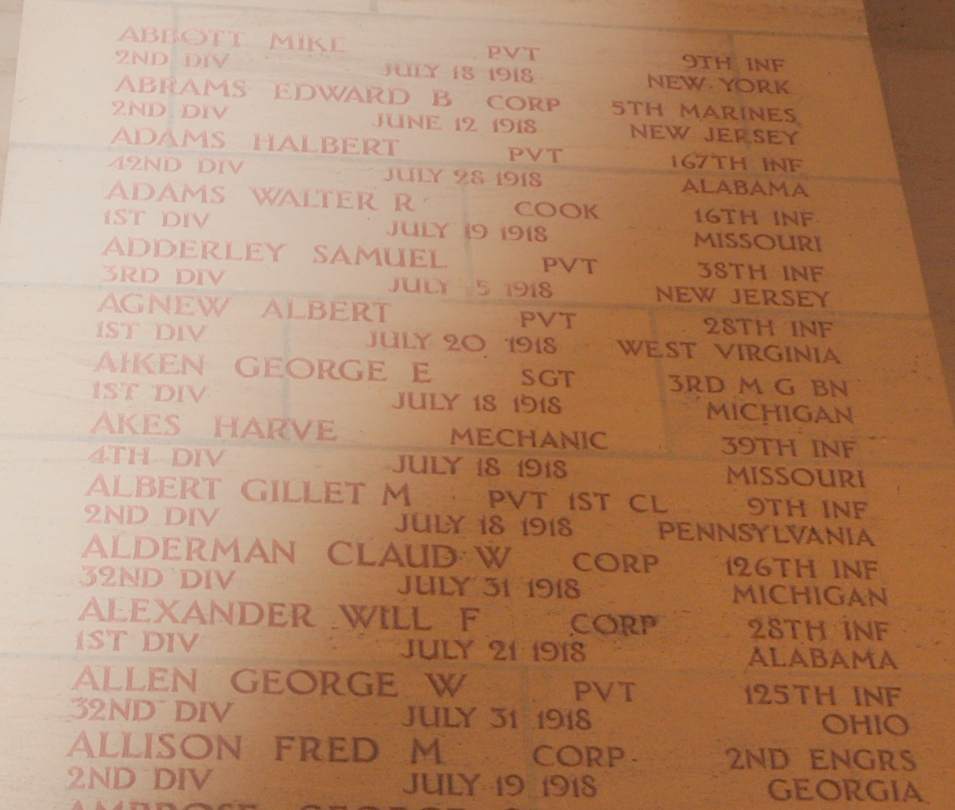 ABBOTT MIKE PVT 9TH INF
2ND DIV JULY 18 1918 NEW YORK
ABRAMS EDWARD B CORP 5TH MARINES
2ND DIV JUNE 12 1918 NEW JERSEY
ADAMS HALBERT PVT 167TH INF
42ND DIV JULY 28 1918 ALABAMA
ADAMS WALTER R COOK 16TH INF
1ST DIV JULY 19 1918 MISSOURI
ADDERLEY SAMUEL PVT 38TH INF
3RD DIV JULY 5 1918 NEW JERSEY
AGNEW ALBERT PVT 28TH INF
1ST DIV JULY 20 1918 WEST VIRGINIA
AIKEN GEORGE E SGT 3RD M G BN
1ST DIV JULY 18 1918 MICHIGAN
AKES HARVE MECHANIC 39TH INF
4TH DIV JULY 18 1918 MISSOURI
ALBERT GILLET M PVT 1ST CL 9TH INF
2ND DIV JULY 18 1918 PENNSYLVANIA
ALDERMAN CLAUD W CORP 126TH INF
32ND DIV JULY 31 1918 MICHIGAN
ALEXANDER WILL F CORP 28TH INF
1ST DIV JULY 21 1918 ALABAMA
ALLEN GEORGE W PVT 125TH INF
32ND DIV JULY 31 1918 OHIO
ALLISON FRED M CORP 2ND ENGRS
2ND DIV JULY 19 1918 GEORGIA
AMBROSE GEORGE